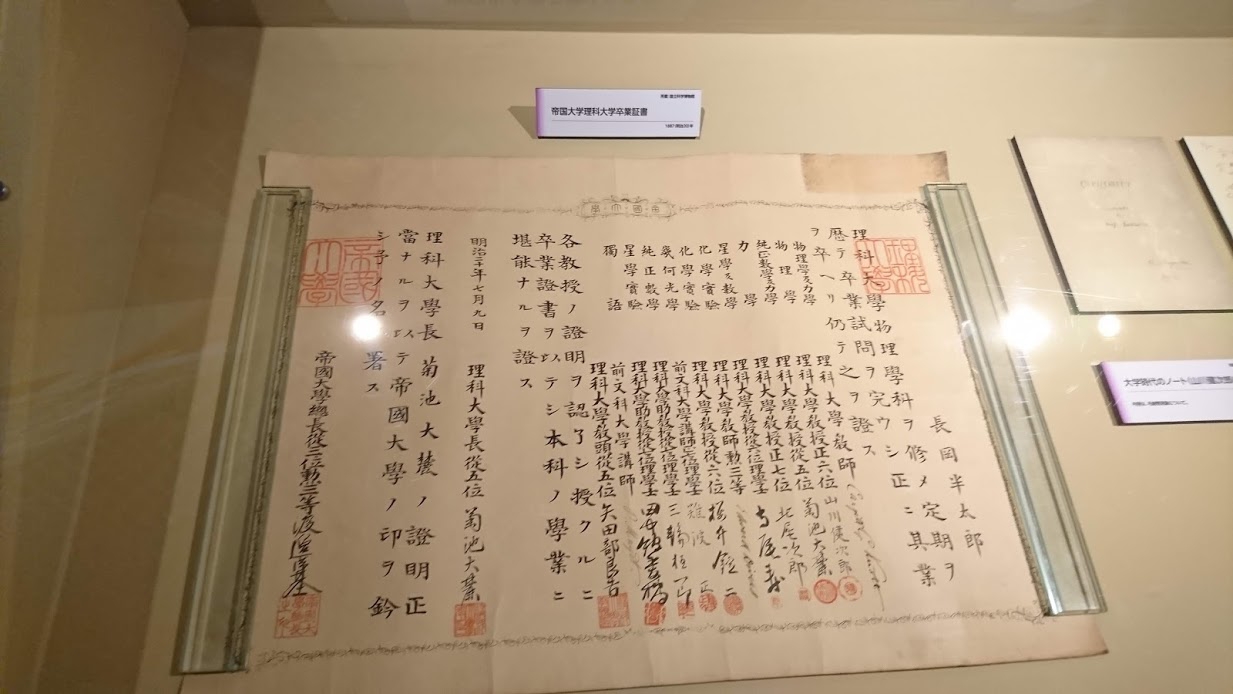 帝国大学理科大学卒業証書
1887(明治20)年
帝國大學
長岡半太郎
理科大學物理學科ヲ修メ定期ヲ
歴テ卒業試問ヲ完ウシ正ニ其業
ヲ卒ヘリ仍テ之ヲ證ス
物理學及力學 理科大學教師
物理學 理科大學教授正六位 山川健次郎
純正數學及力學 理科大學教授從五位 菊池大麓
力學 理科大學教授正七位 北尾次郎
星學及數學 理科大學教授從六位理學士 寺尾壽
化學實驗 理科大學教師勲三等
化學實驗 理科大學教授從六位 櫻井錠二
幾何光學 難波正
純正數學 三輪桓一郎
星學實驗 田中舘愛橘
獨語 前文科大學講師
理科大學教頭從五位 矢田部良吉
各教授ノ證明ヲ認了シ授クルニ
卒業證書ヲ以テシ本科ノ學業ニ
堪能ナルヲ證ス
明治二十年七月九日 理科大學長從五位 菊池大麓
理科大學長菊池大麓ノ證明正
當ナルヲ以テ帝國大學ノ印ヲ鈐
シ予ノ名ヲ署ス
帝國大學總長從三位勲三等渡邊洪基
大学時代のノート(山川健次郎